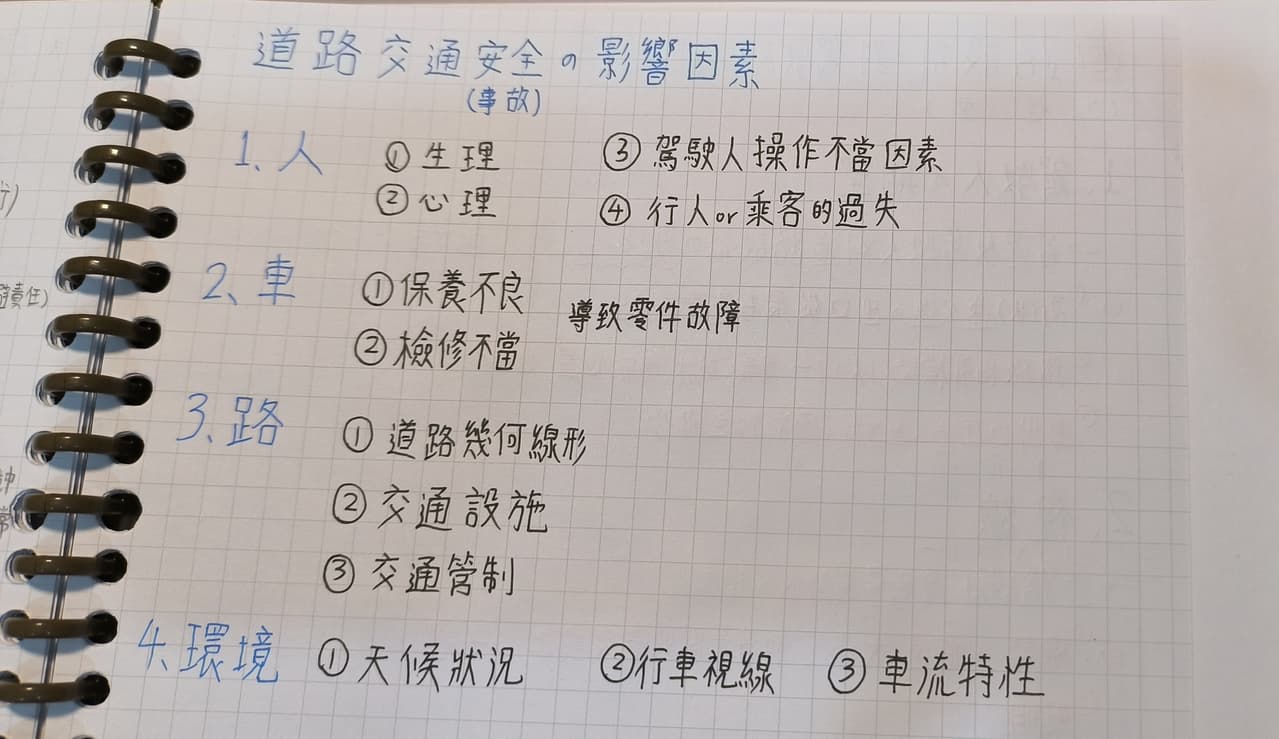 道路交通安全の影響因素
(事故)
1、人 ①生理 ③駕駛人操作不當因素
②心理 ④行人or乘客的過失
2、車 ①保養不良
導致零件故障
②檢修不當
3、路 ①道路幾何線形
②交通設施
③交通管制
4、環境 ①天候狀況 ②行車視線 ③車流特性